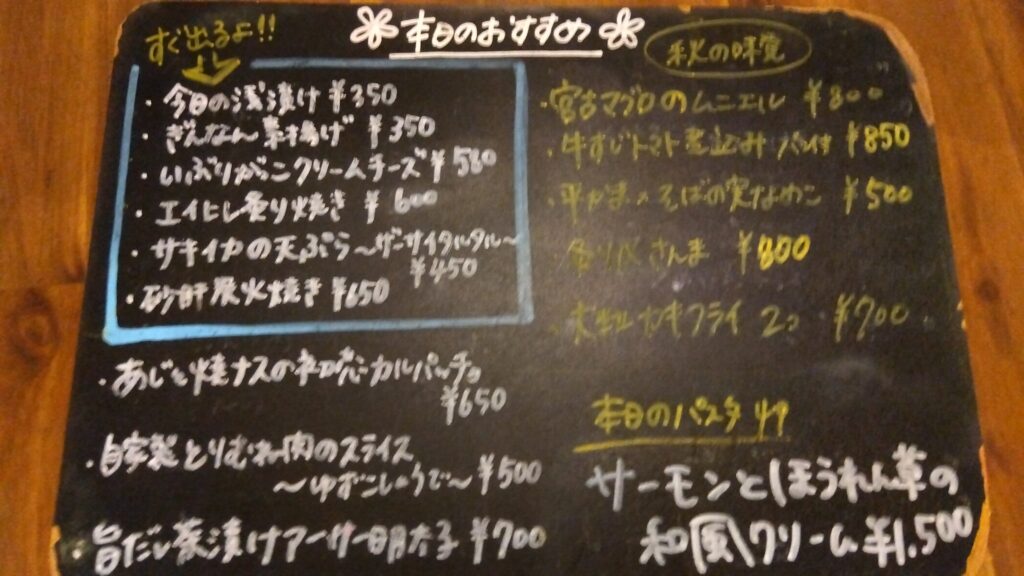 本日のおすすめ
すぐ出るよ!!
・今日の浅漬け ¥350
・ぎんなん素揚げ ¥350
・いぶりがっこクリームチーズ ¥580
・エイヒレ炙り焼き ¥600
・サキイカの天ぷら〜ザーサイタルタル〜
¥450
・砂肝炭火焼き ¥650
・あじと焼ナスの和風カルパッチョ
¥650
・自家製とりむね肉のスライス
〜ゆずこしょうで〜 ¥500
・旨だし茶漬けアーサー明太子 ¥700
秋の味覚
・宮古マグロのムニエル ¥800
・牛すじトマト煮込み パン付 ¥850
・そばの実なめこ ¥500
・炙り〆さんま ¥800
・大粒カキフライ 2コ ¥700
本日のパスタ
サーモンとほうれん草の
和風クリーム ¥1,500